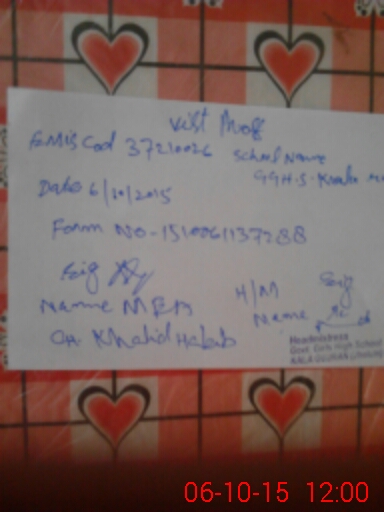 Visit Proof
EMIS Cod 37210026 School Name
GGH.S. Kala
Date 6/10/2015
Form No-1510061137288
Sig
Name MEA
Ch. Khalid Habab
H/M Sig
Name
Headmistress
Govt. Girls High School
KALA GUJRAN (Jhelum)
06-10-15 12:00